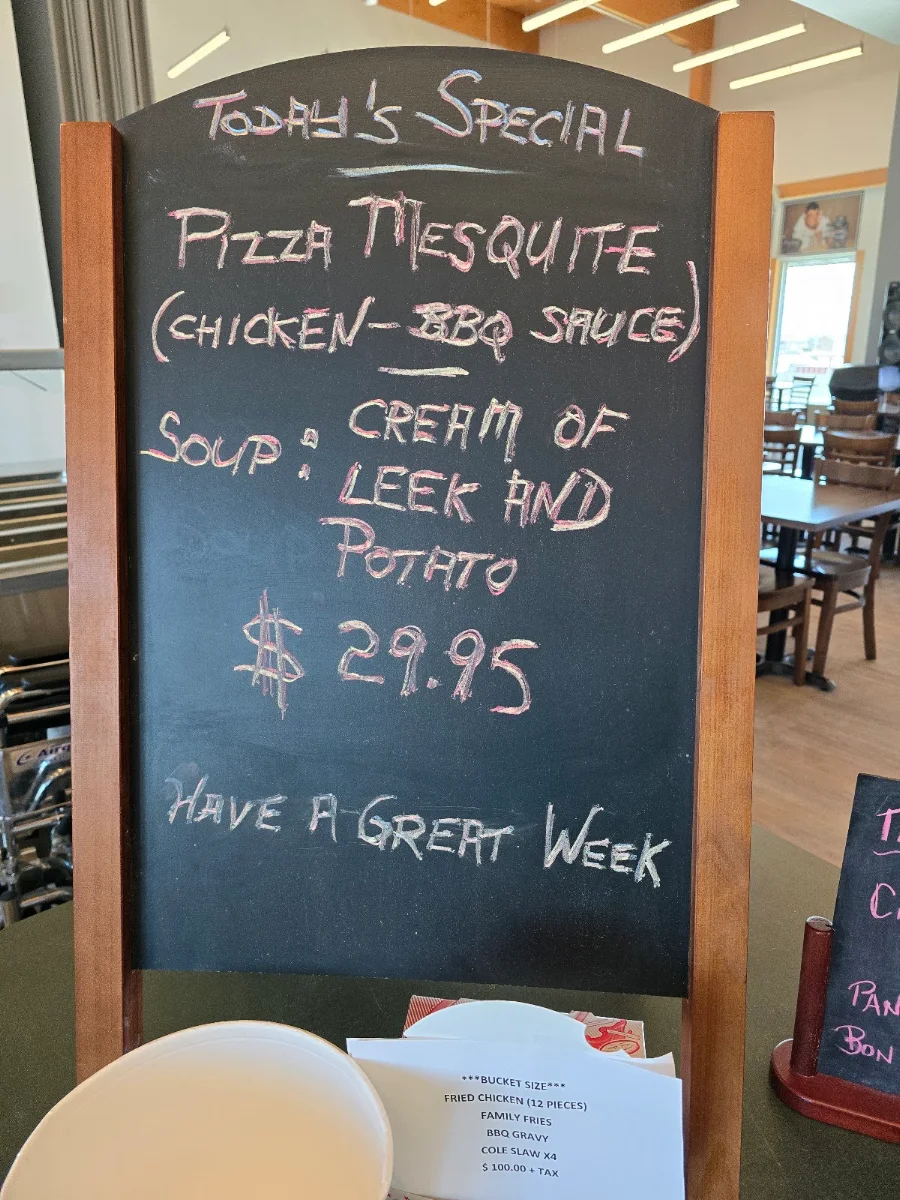 TODAY'S SPECIAL
PIZZA MESQUITE
(CHICKEN - BBQ SAUCE)
SOUP: CREAM OF
LEEK AND
POTATO
$ 29.95
HAVE A GREAT WEEK
***BUCKET SIZE***
FRIED CHICKEN (12 PIECES)
FAMILY FRIES
BBQ GRAVY
COLE SLAW X4
$ 100.00 + TAX
PAN
BON